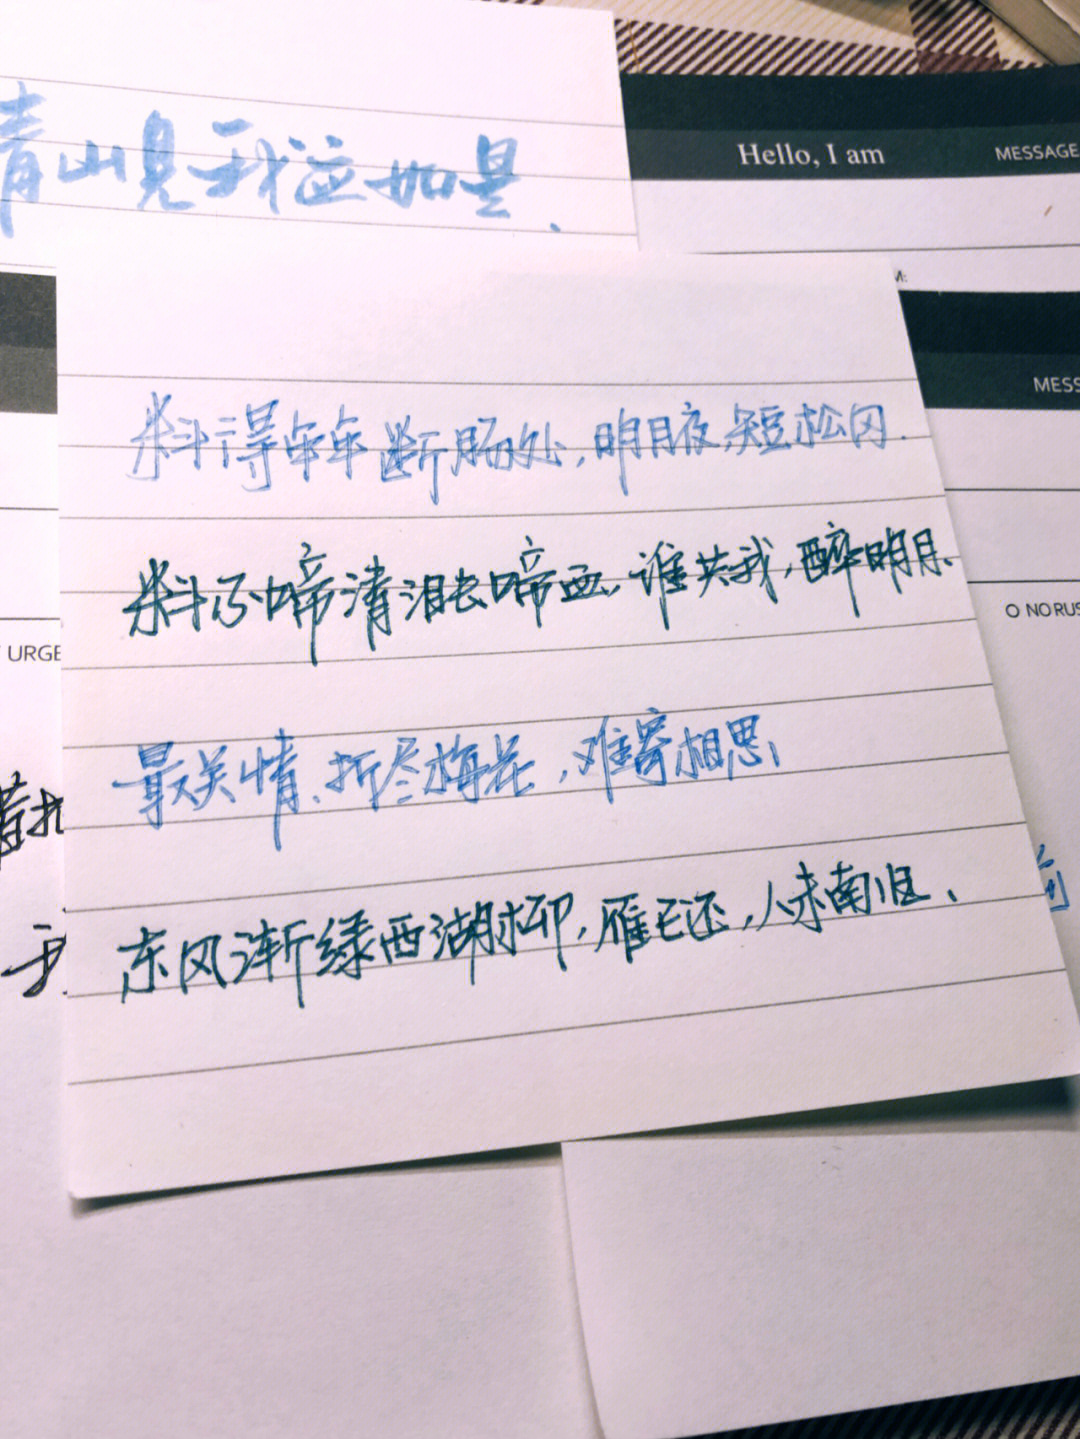 青山见我应如是.
Hello, I am
MESSAGE
M:
MESS
料得年年断肠处,明月夜,短松冈.
O NO RUS
料不啼清泪长啼血,谁共我,醉明月.
URGE
最关情、折尽梅花,难寄相思、
东风渐绿西湖柳,雁已还,人未南归、